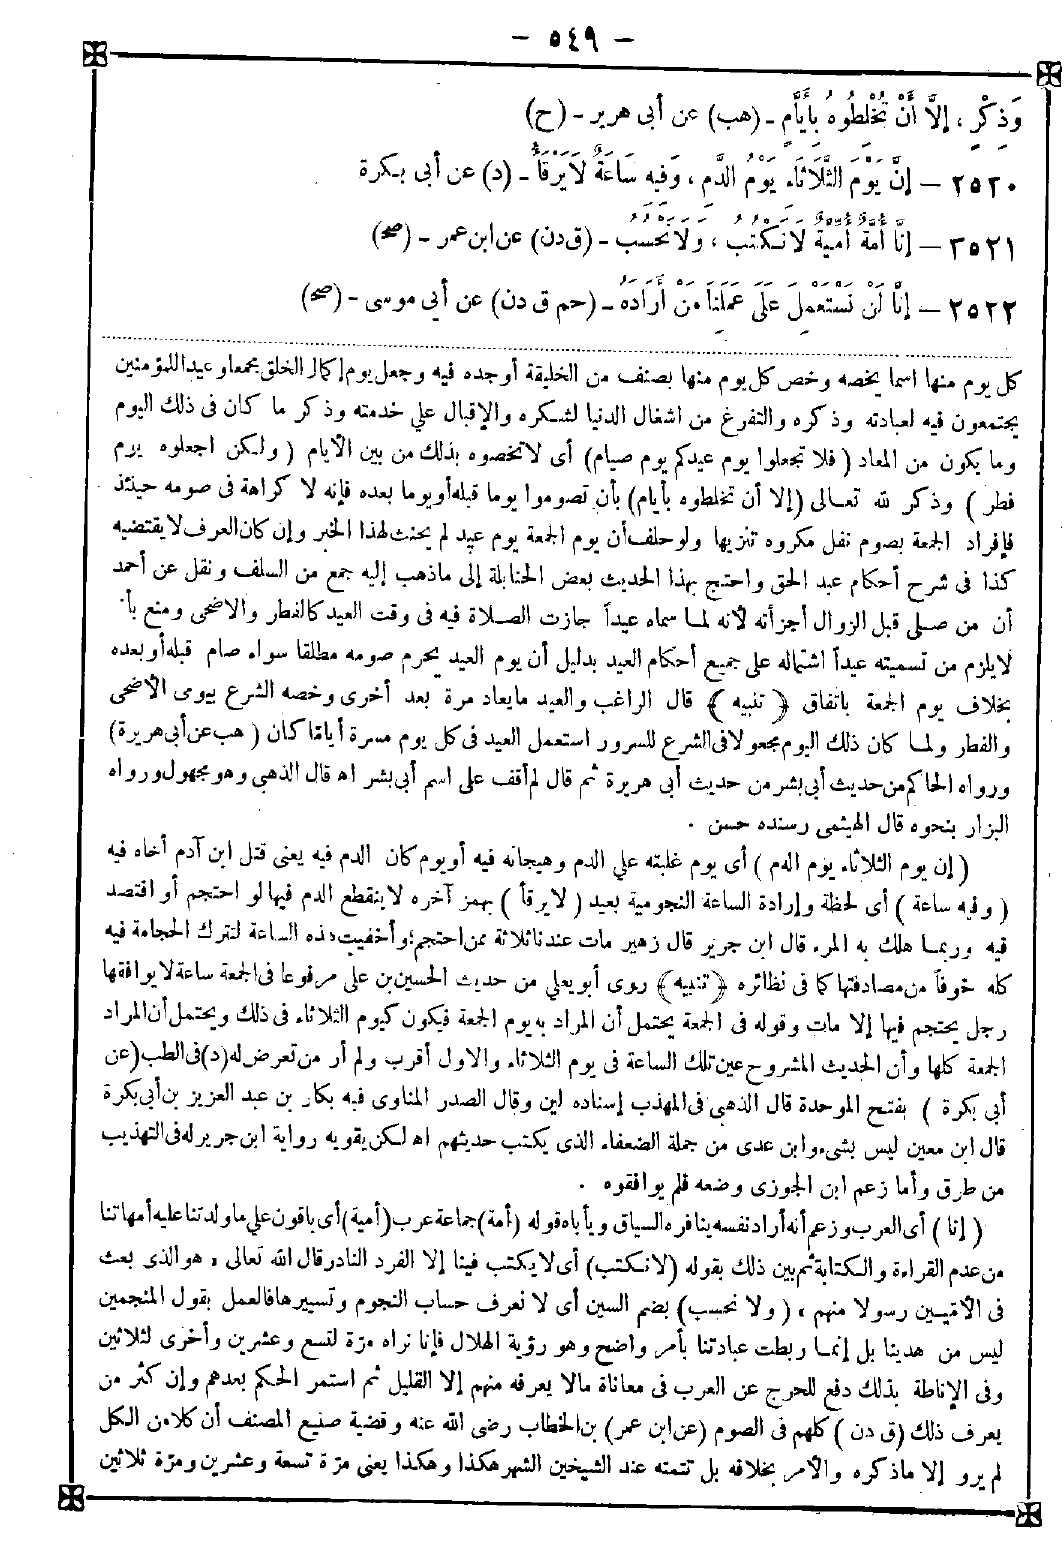 - ٥٤٩ -
وَذِكْرٍ ، إِلَّا أَنْ تَخْلِطُوهُ بِأَيَّامٍ - (هب) عن أبى هرير - (ح)
٢٥٢٠ - إِنَّ يَوْمَ الثَّلَاثَاءِ يَوْمُ الدَّمِ ، وَفِيهِ سَاعَةٌ لَا يَرْقَأُ - (د) عن أبى بكرة
٢٥٢١ - إِنَّا أُمَّةٌ أُمِّيَّةٌ لَا نَكْتُبُ ، وَلَا نَحْسُبُ - (ق دن) عن ابن عمر - (صح)
٢٥٢٢ - إِنَّا لَنْ نَسْتَعْمِلَ عَلَى عَمَلِنَا مَنْ أَرَادَهُ - (حم ق دن) عن أبي موسى - (صح)
كل يوم منها اسما يخصه وخص كل يوم منها بصنف من الخليقة أوجده فيه وجعل يوم إكمال الخلق مجمعا وعيدا للمؤمنين
يجتمعون فيه لعبادته وذكره والتفرغ من اشغال الدنيا لشكره والإقبال علي خدمته وذكر ما كان فى ذلك اليوم
وما يكون من المعاد ( فلا تجعلوا يوم عيدكم يوم صيام) أى لا تخصوه بذلك من بين الأيام ( ولكن اجعلوه يوم
فطر ) وذكر لله تعالى (إلا أن تخلطوه بأيام) بأن تصوموا يوما قبله أو يوما بعده فإنه لا كراهة فى صومه حينئذ
فإفراد الجمعة بصوم نفل مكروه تنزيها ولو حلف أن يوم الجمعة يوم عيد لم يحنث لهذا الخبر وإن كان العرف لا يقتضيه
كذا فى شرح أحكام عبد الحق واحتج بهذا الحديث بعض الحنابلة إلى ماذهب إليه جمع من السلف ونقل عن أحمد
أن من صلى قبل الزوال أجزأته لأنه لما سماه عيداً جازت الصلاة فيه فى وقت العيد كالفطر والاضحى ومنع بأن
لا يلزم من تسميته عيداً اشتماله على جميع أحكام العيد بدليل أن يوم العيد يحرم صومه مطلقا سواء صام قبله أو بعده
بخلاف يوم الجمعة باتفاق ﴿ تنبيه ﴾ قال الراغب والعيد ما يعاد مرة بعد أخرى وخصه الشرع بيومى الأضحى
والفطر ولما كان ذلك اليوم مجعولا فى الشرع للسرور استعمل العيد فى كل يوم مسرة أياما كان ( هب عن أبى هريرة)
ورواه الحاكم من حديث أبى بشر من حديث أبى هريرة ثم قال لم أقف على اسم أبى بشر اه قال الذهبى وهو مجهول ورواه
البزار بنحوه قال الهيثمى وسنده حسن .
( إن يوم الثلاثاء يوم الدم ) أى يوم غلبته علي الدم وهيجانه فيه أو يوم كان الدم فيه يعنى قتل ابن آدم أخاه فيه
( وفيه ساعة ) أى لحظة وإرادة الساعة النجومية بعيد ( لا يرقأ ) بهمز آخره لا ينقطع الدم فيها لو احتجم أو افتصد
فيه وربما هلك به المرء قال ابن جرير قال زهير مات عندنا ثلاثة ممن احتجم؛ وأخفيت هذه الساعة لتترك الحجامة فيه
كله خوفاً من مصادفتها كما فى نظائره ﴿ تنبيه﴾ روى أبو يعلي من حديث الحسين بن على مرفوعا فى الجمعة ساعة لا يوافقها
رجل يحتجم فيها إلا مات وقوله فى الجمعة يحتمل أن المراد به يوم الجمعة فيكون كيوم الثلاثاء فى ذلك ويحتمل أن المراد
الجمعة كلها وأن الحديث المشروح عين تلك الساعة فى يوم الثلاثاء والاول أقرب ولم أر من تعرض له (د) فى الطب (عن
أبى بكرة ) بفتح الموحدة قال الذهبى فى المهذب إسناده لين وقال الصدر المناوى فيه بكار بن عبد العزيز بن أبى بكرة
قال ابن معين ليس بشىء وابن عدى من جملة الضعفاء الذى يكتب حديثهم اه لكن يقويه رواية ابن جرير له فى التهذيب
من طرق وأما زعم ابن الجوزى وضعه فلم يوافقوه .
( إنا ) أى العرب وزعم أنه أراد نفسه ينافره السياق ويأباه قوله (أمة) جماعة عرب (أمية) أى باقون علي ما ولدتنا عليه أمهاتنا
من عدم القراءة والكتابة ثم بين ذلك بقوله (لا نكتب) أى لا يكتب فينا إلا الفرد النادر قال الله تعالى ، هو الذى بعث
فى الأميين رسولا منهم ، ( ولا نحسب) بضم السين أى لا نعرف حساب النجوم وتسييرها فالعمل بقول المنجمين
ليس من هدينا بل إنما ربطت عبادتنا بأمر واضح وهو رؤية الهلال فإنا نراه مرّة لتسع وعشرين وأخرى لثلاثين
وفى الإناطة بذلك دفع للحرج عن العرب فى معاناة مالا يعرفه منهم إلا القليل ثم استمر الحكم بعدهم وإن كثر من
يعرف ذلك (ق دن ) كلهم فى الصوم (عن ابن عمر) بن الخطاب رضى الله عنه وقضية صنيع المصنف أن كلا من الكل
لم يرو إلا ماذكره والأمر بخلافه بل تتمته عند الشيخين الشهر هكذا وهكذا يعنى مرّة تسعة وعشرين ومرّة ثلاثين